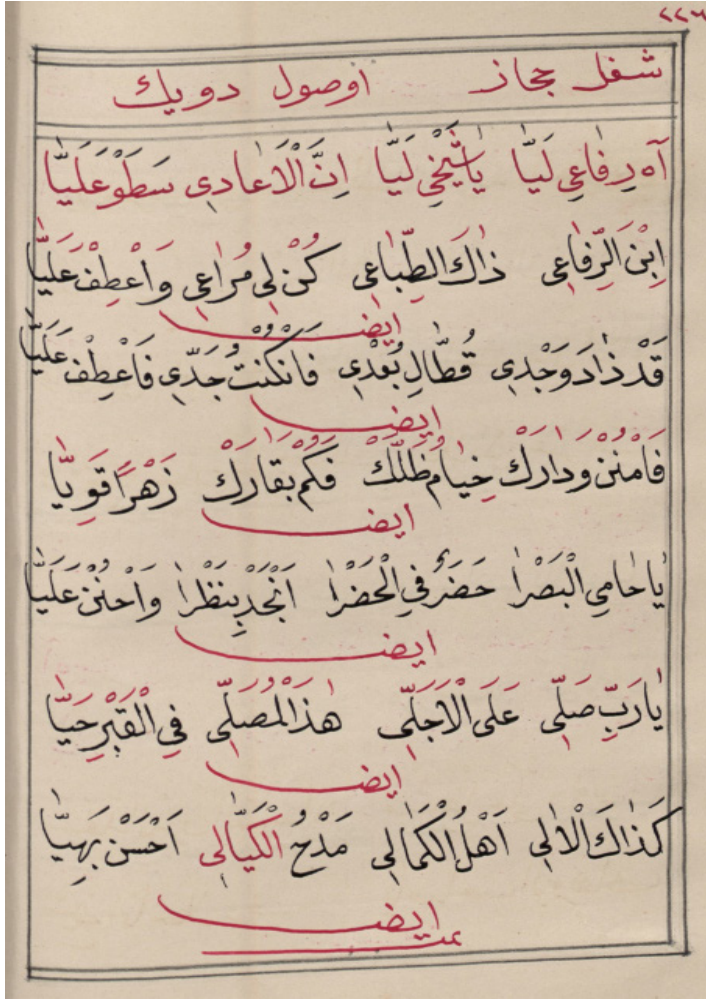 ٢٢٦
شغل حجاز اوصول دويك
آه رِفَاعِي لَيَّا يَاشَيْخِي لَيَّا اِنَّ الْاَعَادِي سَطَوْ عَلَيَّا
اِبْنَ الرِّفَاعِي ذَاكَ الطِّبَاعِي كُنْ لِي مُرَاعِي وَاعْطِفْ عَلَيَّا
ايضا
قَدْ ذَادَ وَجْدِي قُطَّالِ بُعْدِي فَانْكُنْتُ جَدِّي فَاعْطِفْ عَلَيَّا
ايضا
فَامْنُنْ وَدَارَكْ خِيَام ظِلَّكْ فَكَمْ بَقَارَكْ زَهْرًا قَوِيَّا
ايضا
يَا حَامِي الْبَصْرَا حَضَرَةْ فِي الْحَضْرَا اَنْجَدْ بِنَظْرَا وَاحْنُنْ عَلَيَّا
ايضا
يَارَبِّ صَلِّى عَلَى الْاَجَلِّى هٰذَ الْمُصَلِّى فِي الْقَبْرِ حَيَّا
ايضا
كَذَاكَ الْاٰلِى اَهْلُ الْكَمَالِى مَدْحُ الْكَيَّالِى اَحْسَنْ بَهِيَّا
ايضا
تمت